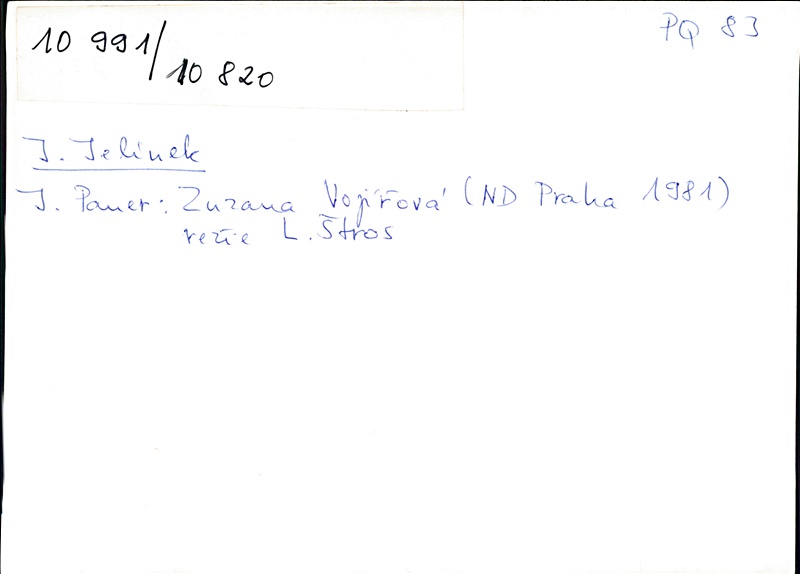 10 991/
10 820
PQ 83
J. Jelinek
J. Pauer: Zuzana Vojířová (ND Praha 1981)
režie L. Štros